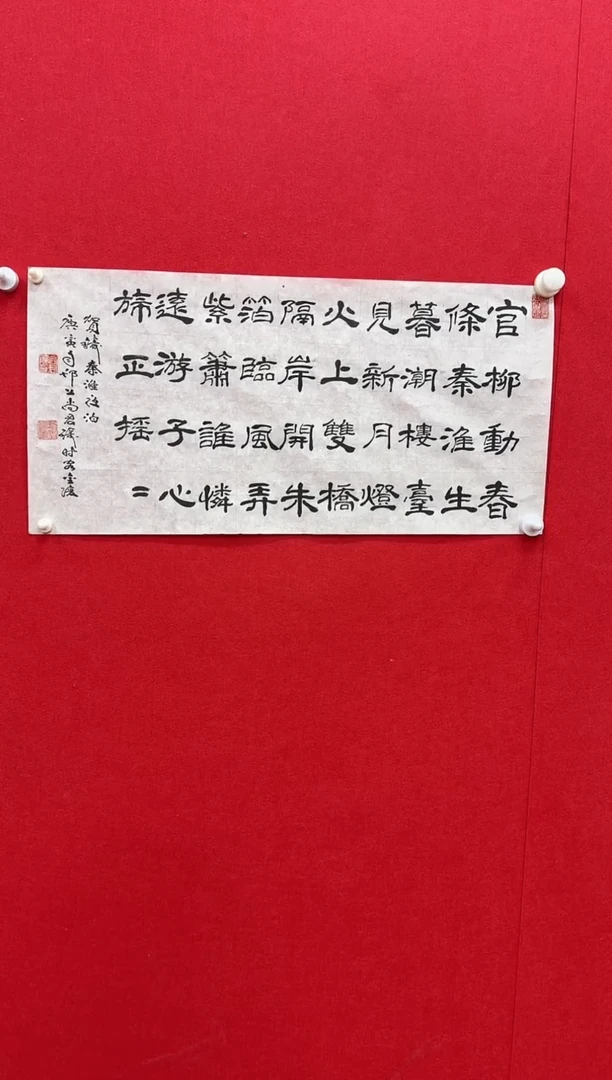 官柳動春
條秦淮生
暮潮樓臺
見新月燈
火上雙橋
隔岸開朱
箔臨風弄
紫簫誰憐
遠游子心
旆正摇=
賀鑄秦淮夜泊
庚寅邗上尚君時客金陵